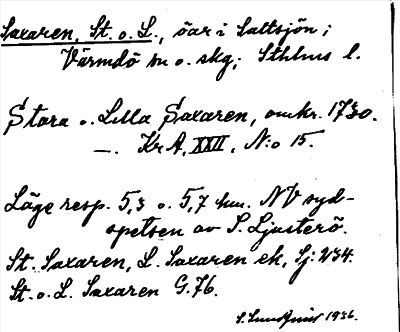 Saxaren, St. o. L., öar i Saltsjön;
Värmdö sn o. skg; Sthlms l.
Stora o. Lilla Saxaren, omkr. 1730.
—. Kr A, XXII, N:o 15.
Läge resp. 5,3 o. 5,7 km. NV syd-
spetsen av S. Ljusterö.
St. Saxaren, L. Saxaren ek, Sj: 234.
St. o. L. Saxaren G. 76.
1936.